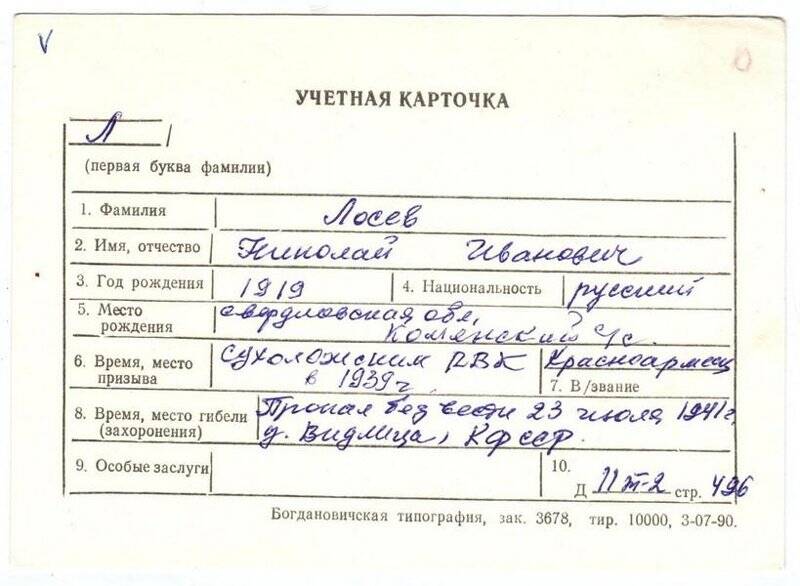 V
УЧЕТНАЯ КАРТОЧКА
Л
(первая буква фамилии)
1. Фамилия Лосев
2. Имя, отчество Николай Иванович
3. Год рождения 1919 4. Национальность русский
5. Место рождения свердловская обл,
Каменский с/с.
6. Время, место призыва Сухоложским РВК
в 1939 г.
Красноармеец
7. В/звание
8. Время, место гибели (захоронения) Пропал без вести 23 июля 1941 г,
д. Видлица, КФССР.
9. Особые заслуги
10.
Д 11т-2 стр. 496
Богдановичская типография, зак. 3678, тир. 10000, 3-07-90.